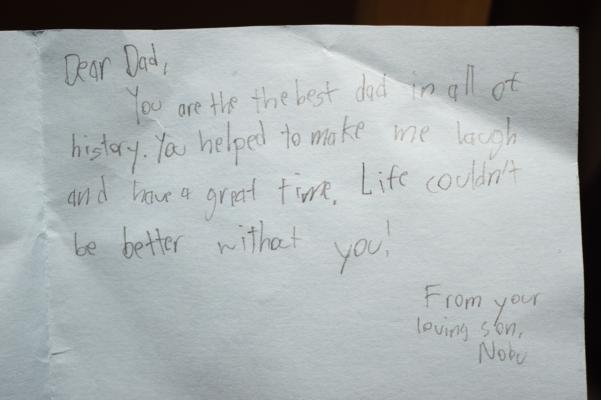 Dear Dad,
You are the the best dad in all of
history. You helped to make me laugh
and have a great time. Life couldn't
be better withoat you!
From your
loving son,
Nobu